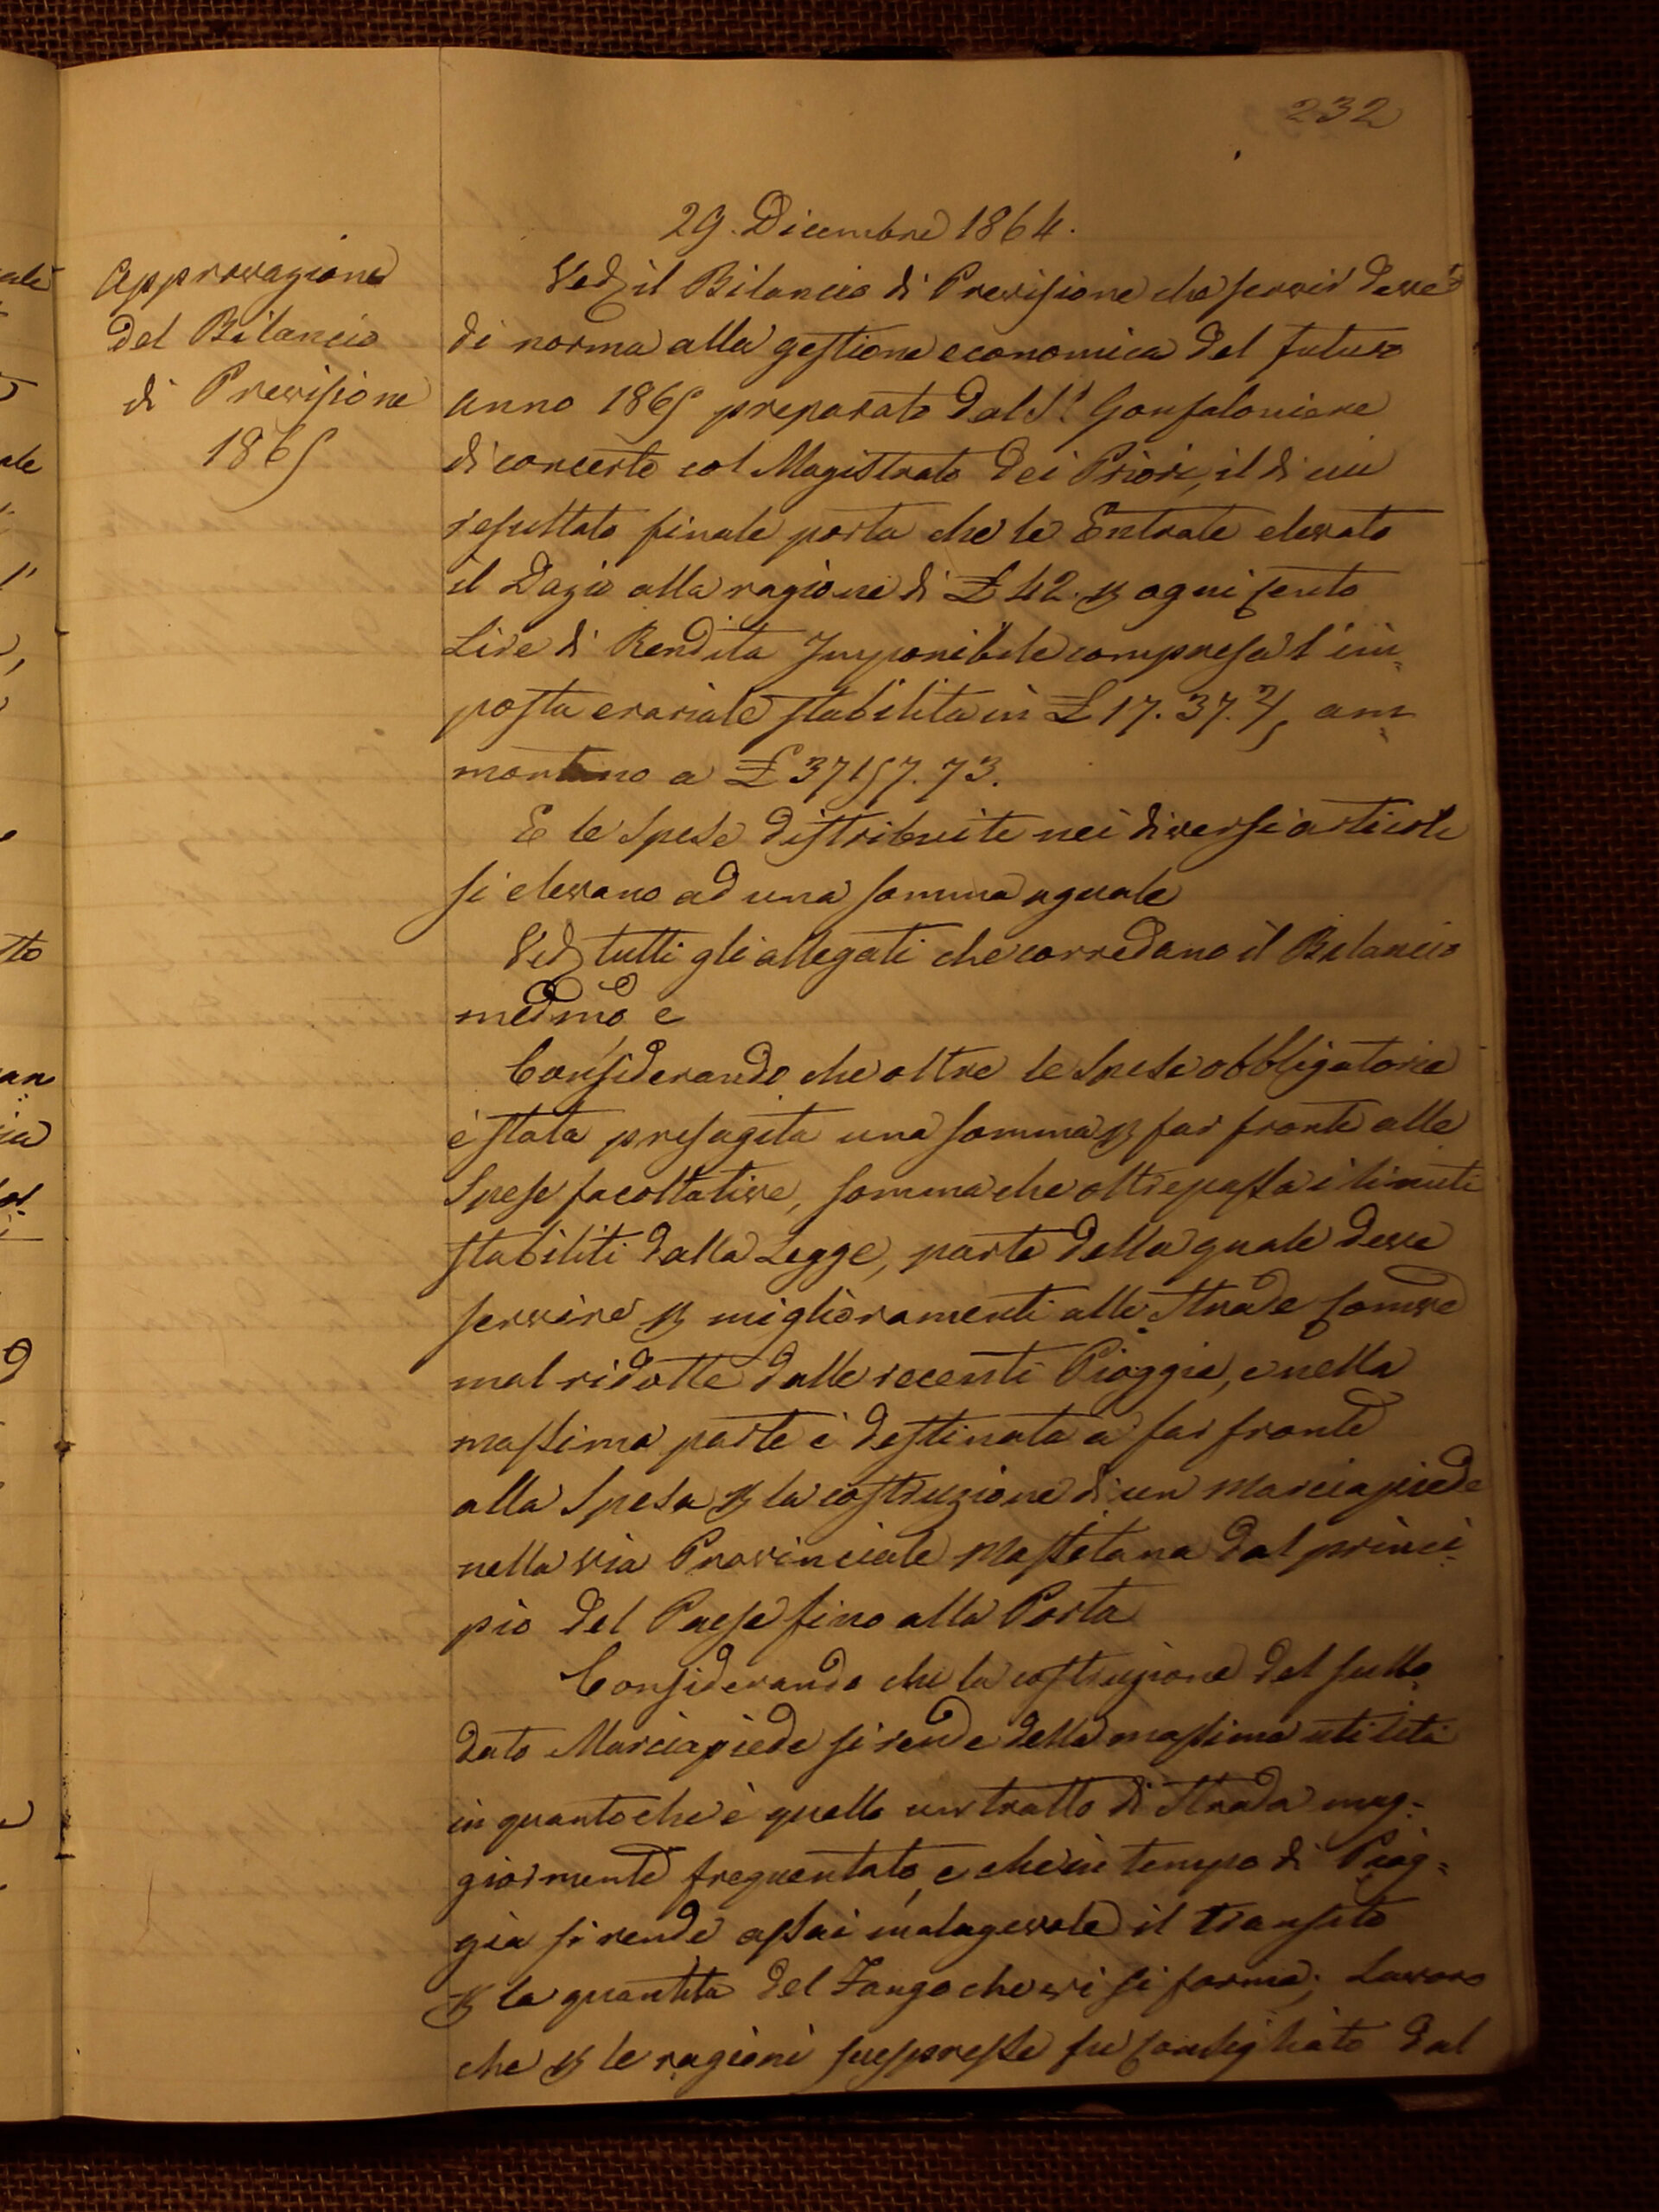 232
29. Dicembre 1864.
Approvazione
del Bilancio
di Previsione
1865
Ved. il Bilancio di Previsione che servir deve
di norma alla gestione economica del futuro
anno 1865 preparato dal Sr. Gonfaloniere
di concerto col Magistrato dei Priori, il di cui
resultato finale porta che le Entrate elevato
il Dazio alla ragione di £ 42. p ogni Cento
Lire di Rendita Imponibile compresa l'im=
posta erariale stabilita in £ 17. 37.
am=
montano a £ 37157. 73.
E le Spese distribuite nei diversi articoli
si elevano ad una somma uguale
Ved. tutti gli allegati che corredano il Bilancio
medmo e
Considerando che oltre le Spese obbligatorie
è stata presagita una somma p far fronte alle
Spese facoltative, somma che oltrepassa i limiti
stabiliti dalla Legge, parte della quale deve
servire p miglioramenti alle Strade Comve
mal ridotte dalle recenti Pioggie, e nella
massima parte è destinata a far fronte
alla Spesa p la costruzione di un Marciapiede
nella via Provinciale Massetana dal princi=
pio del Paese fino alla Porta
Considerando che la costruzione del sullo=
dato Marciapiede si rende della massima utilità
in quanto che è quello un tratto di Strada mag=
giormente frequentato, e che in tempo di Piog=
gia si rende assai malagevole il transito
p la quantità del Fango che vi si forma; Lavoro
che p le ragioni suespresse fu Consigliato dal